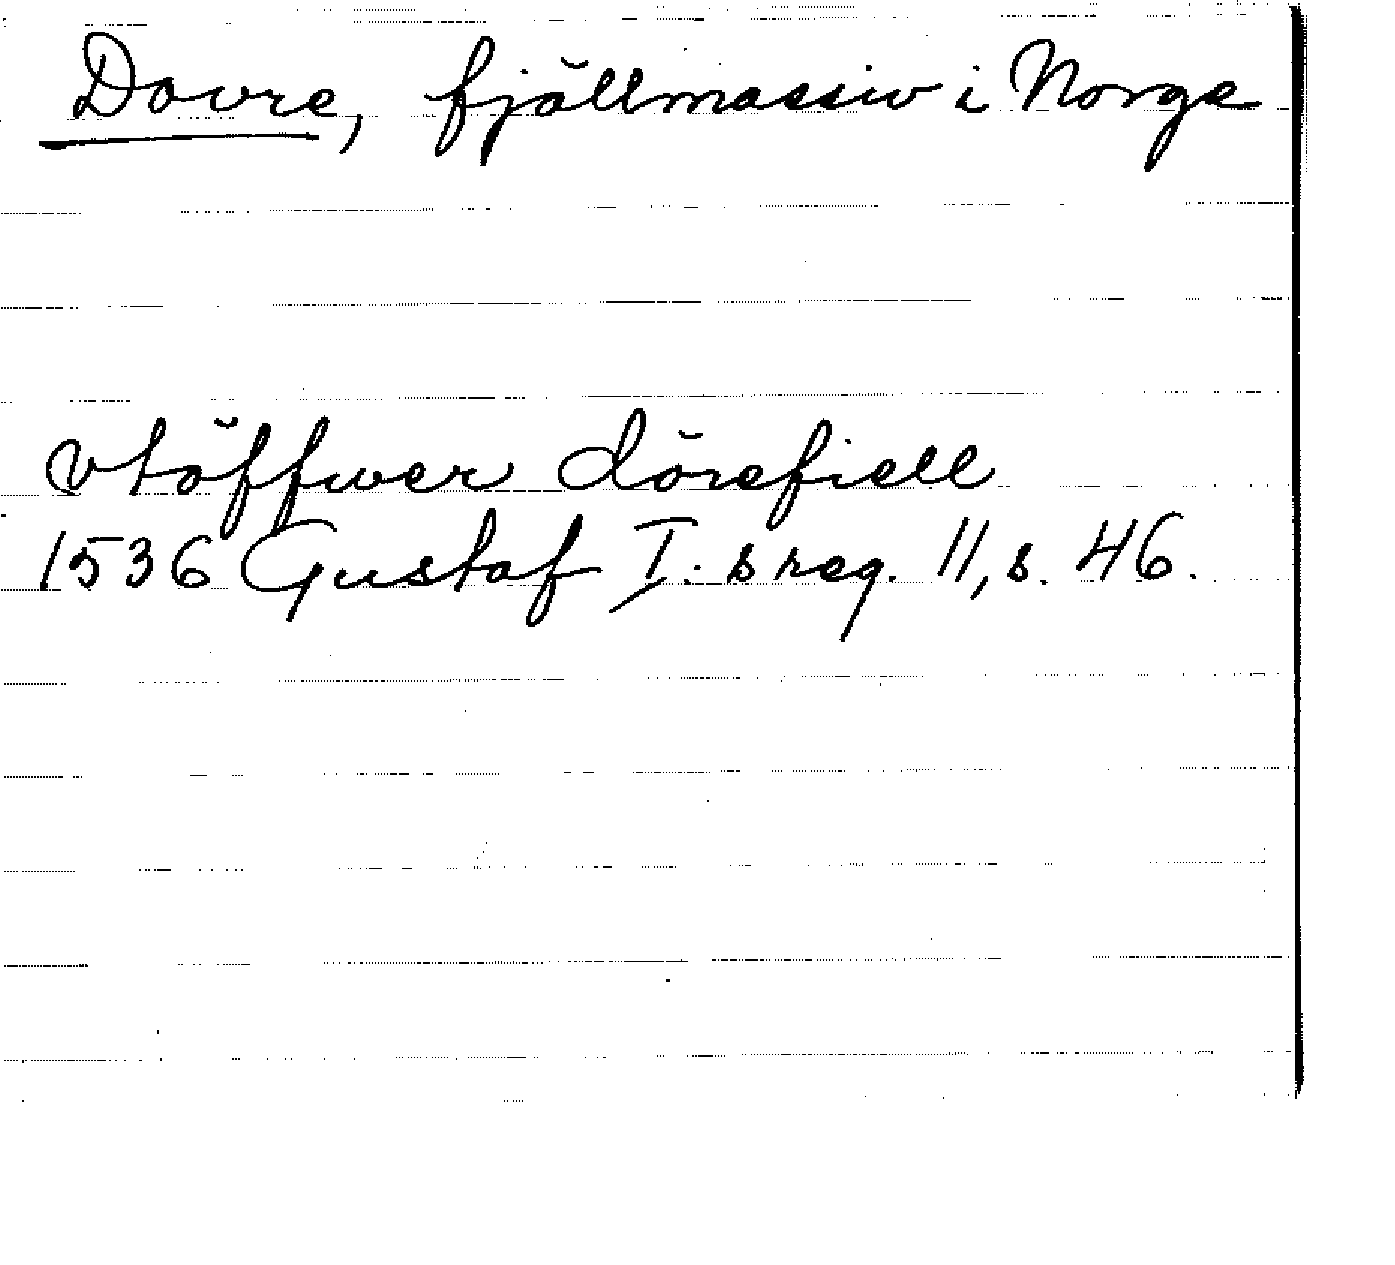 Dovre, fjällmassiv i Norge
vtöffwer dörefiell
1536 Gustaf I:s reg. 11, s. 46.